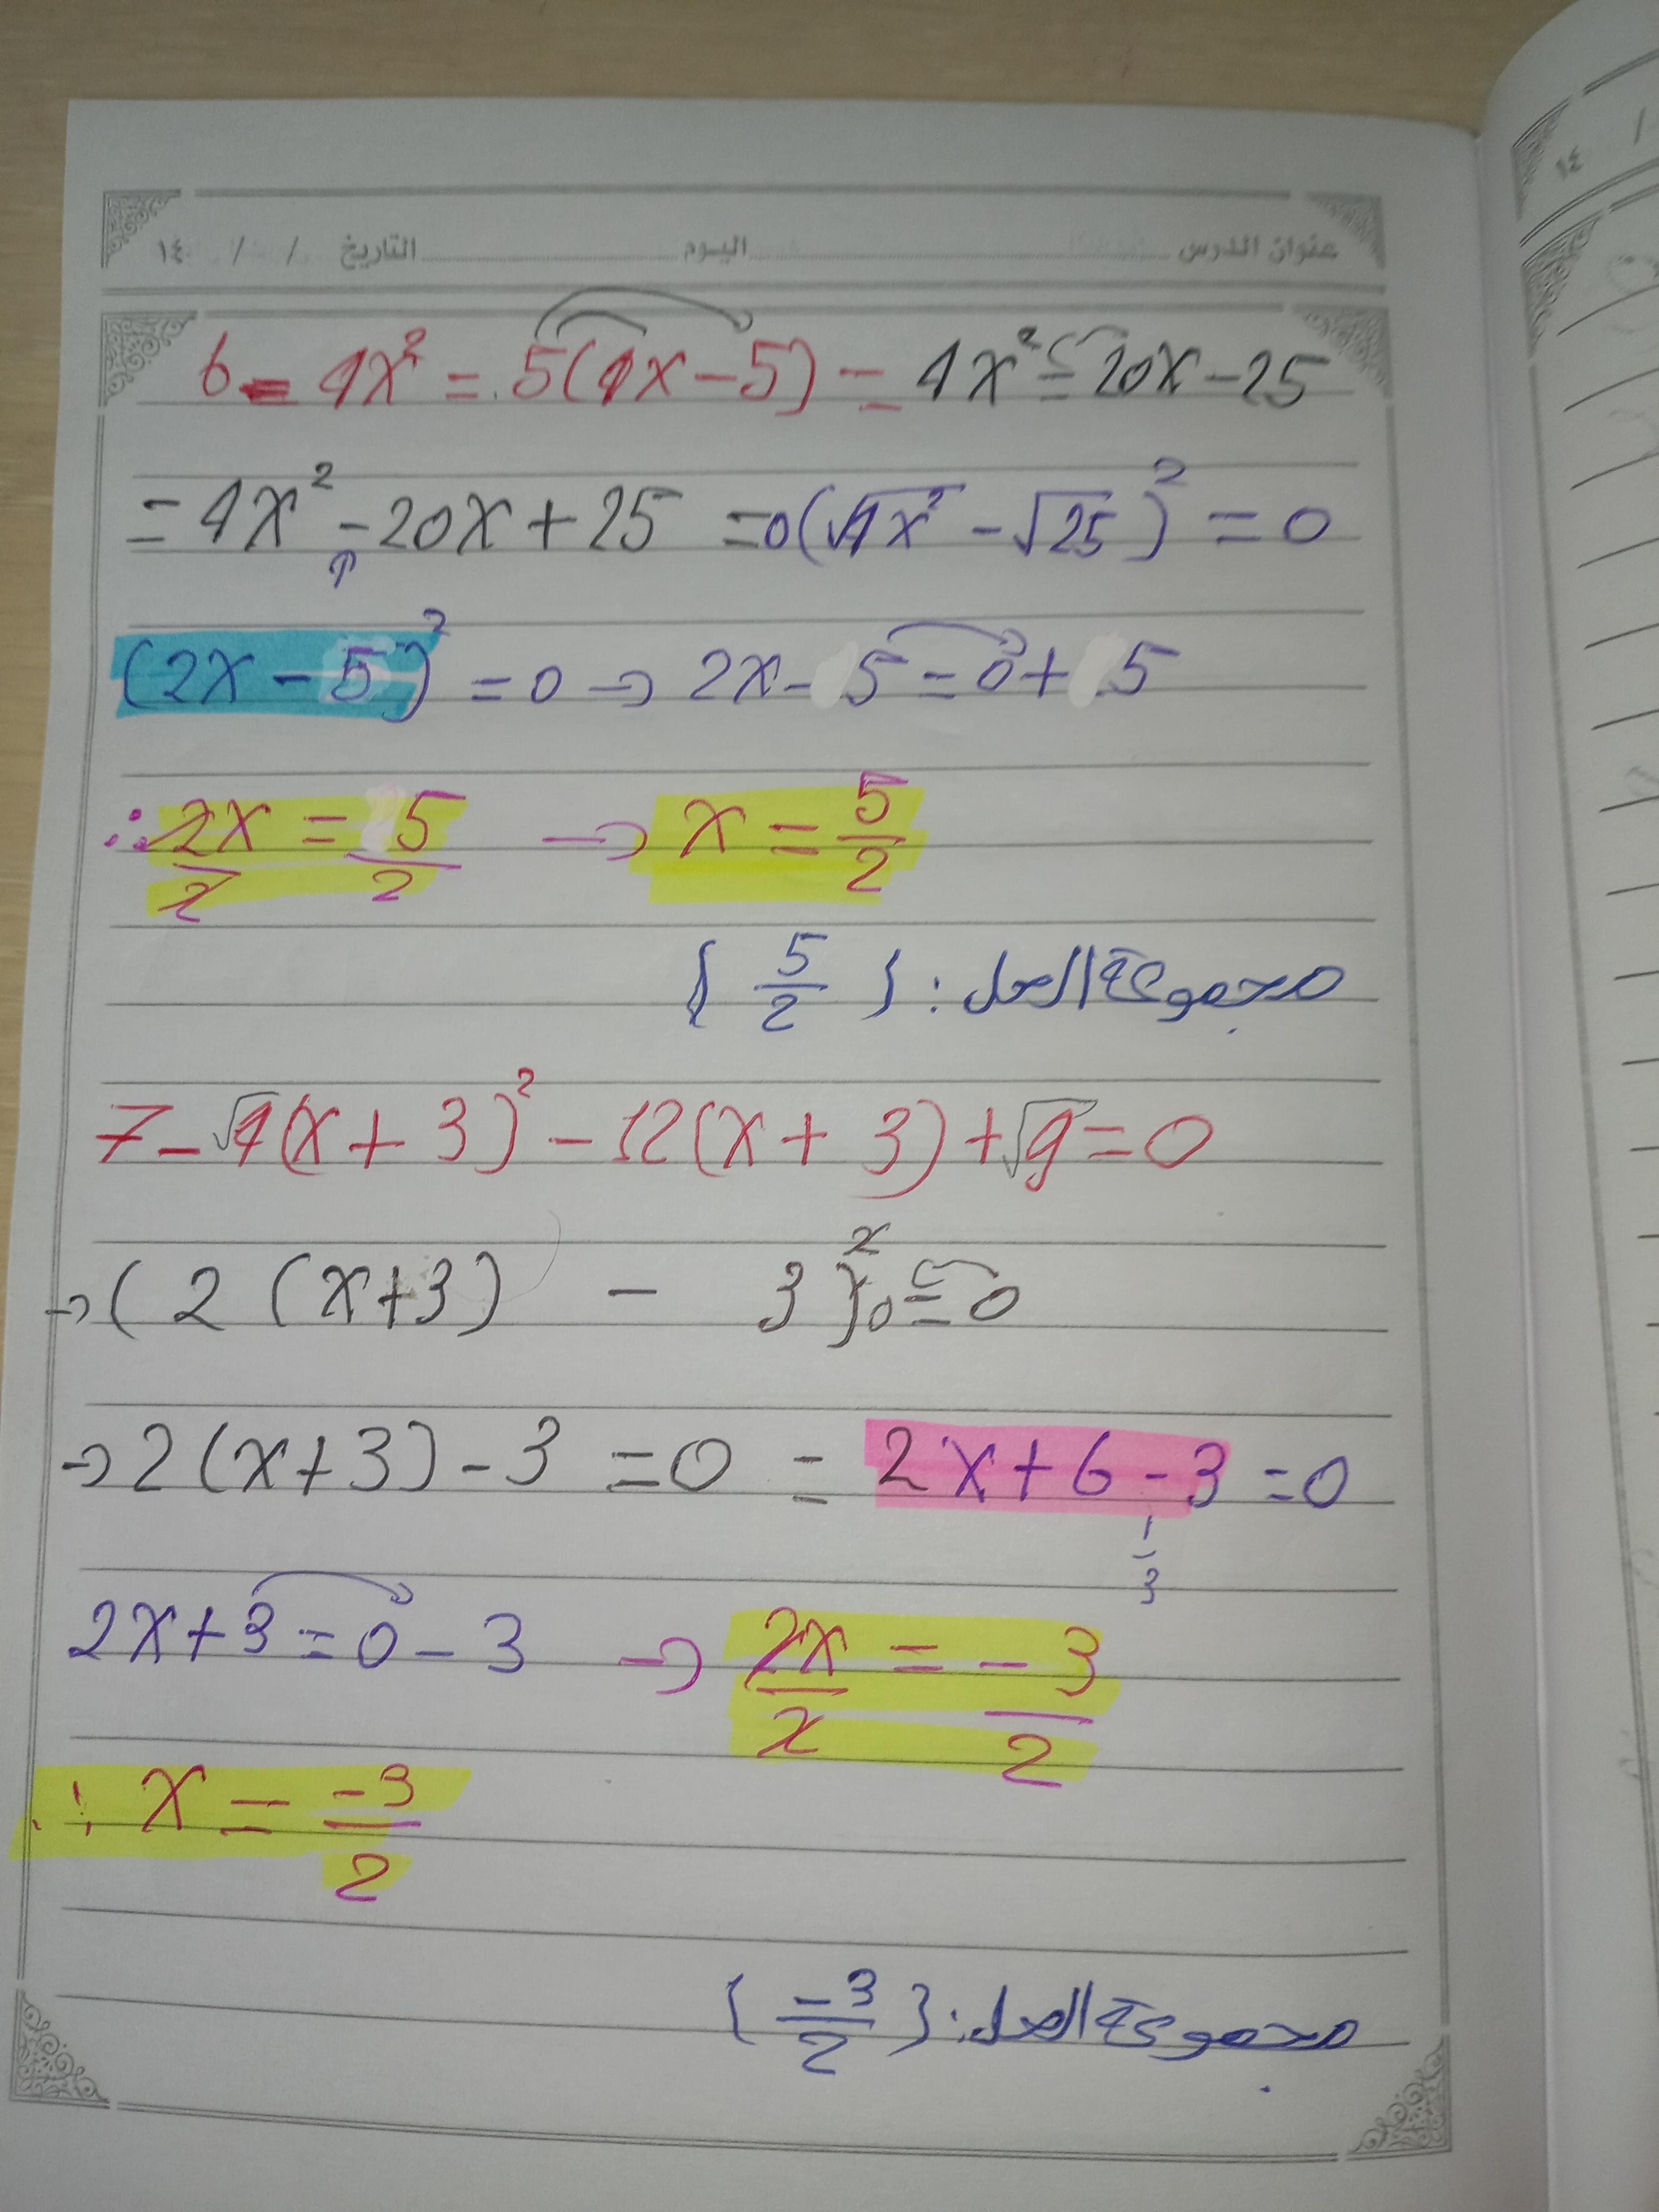 عنوان الدرس اليوم التاريخ / / ١٤
6- 4x² = 5(4x-5) = 4x² = 20x-25
= 4x² - 20x + 25 = 0 (√4x² - √25)² = 0
(2x - 5)² = 0 → 2x - 5 = 0 + 5
∴ 2x/2 = 5/2 → x = 5/2
مجموعة الحل : { 5/2 }
7- √4(x + 3)² - 12(x + 3) + √9 = 0
→ (2 (x+3) - 3)² = 0
→ 2(x+3) - 3 = 0 = 2x + 6 - 3 = 0
2x + 3 = 0 - 3 → 2x/2 = -3/2
∴ x = -3/2
مجموعة الحل : { -3/2 }